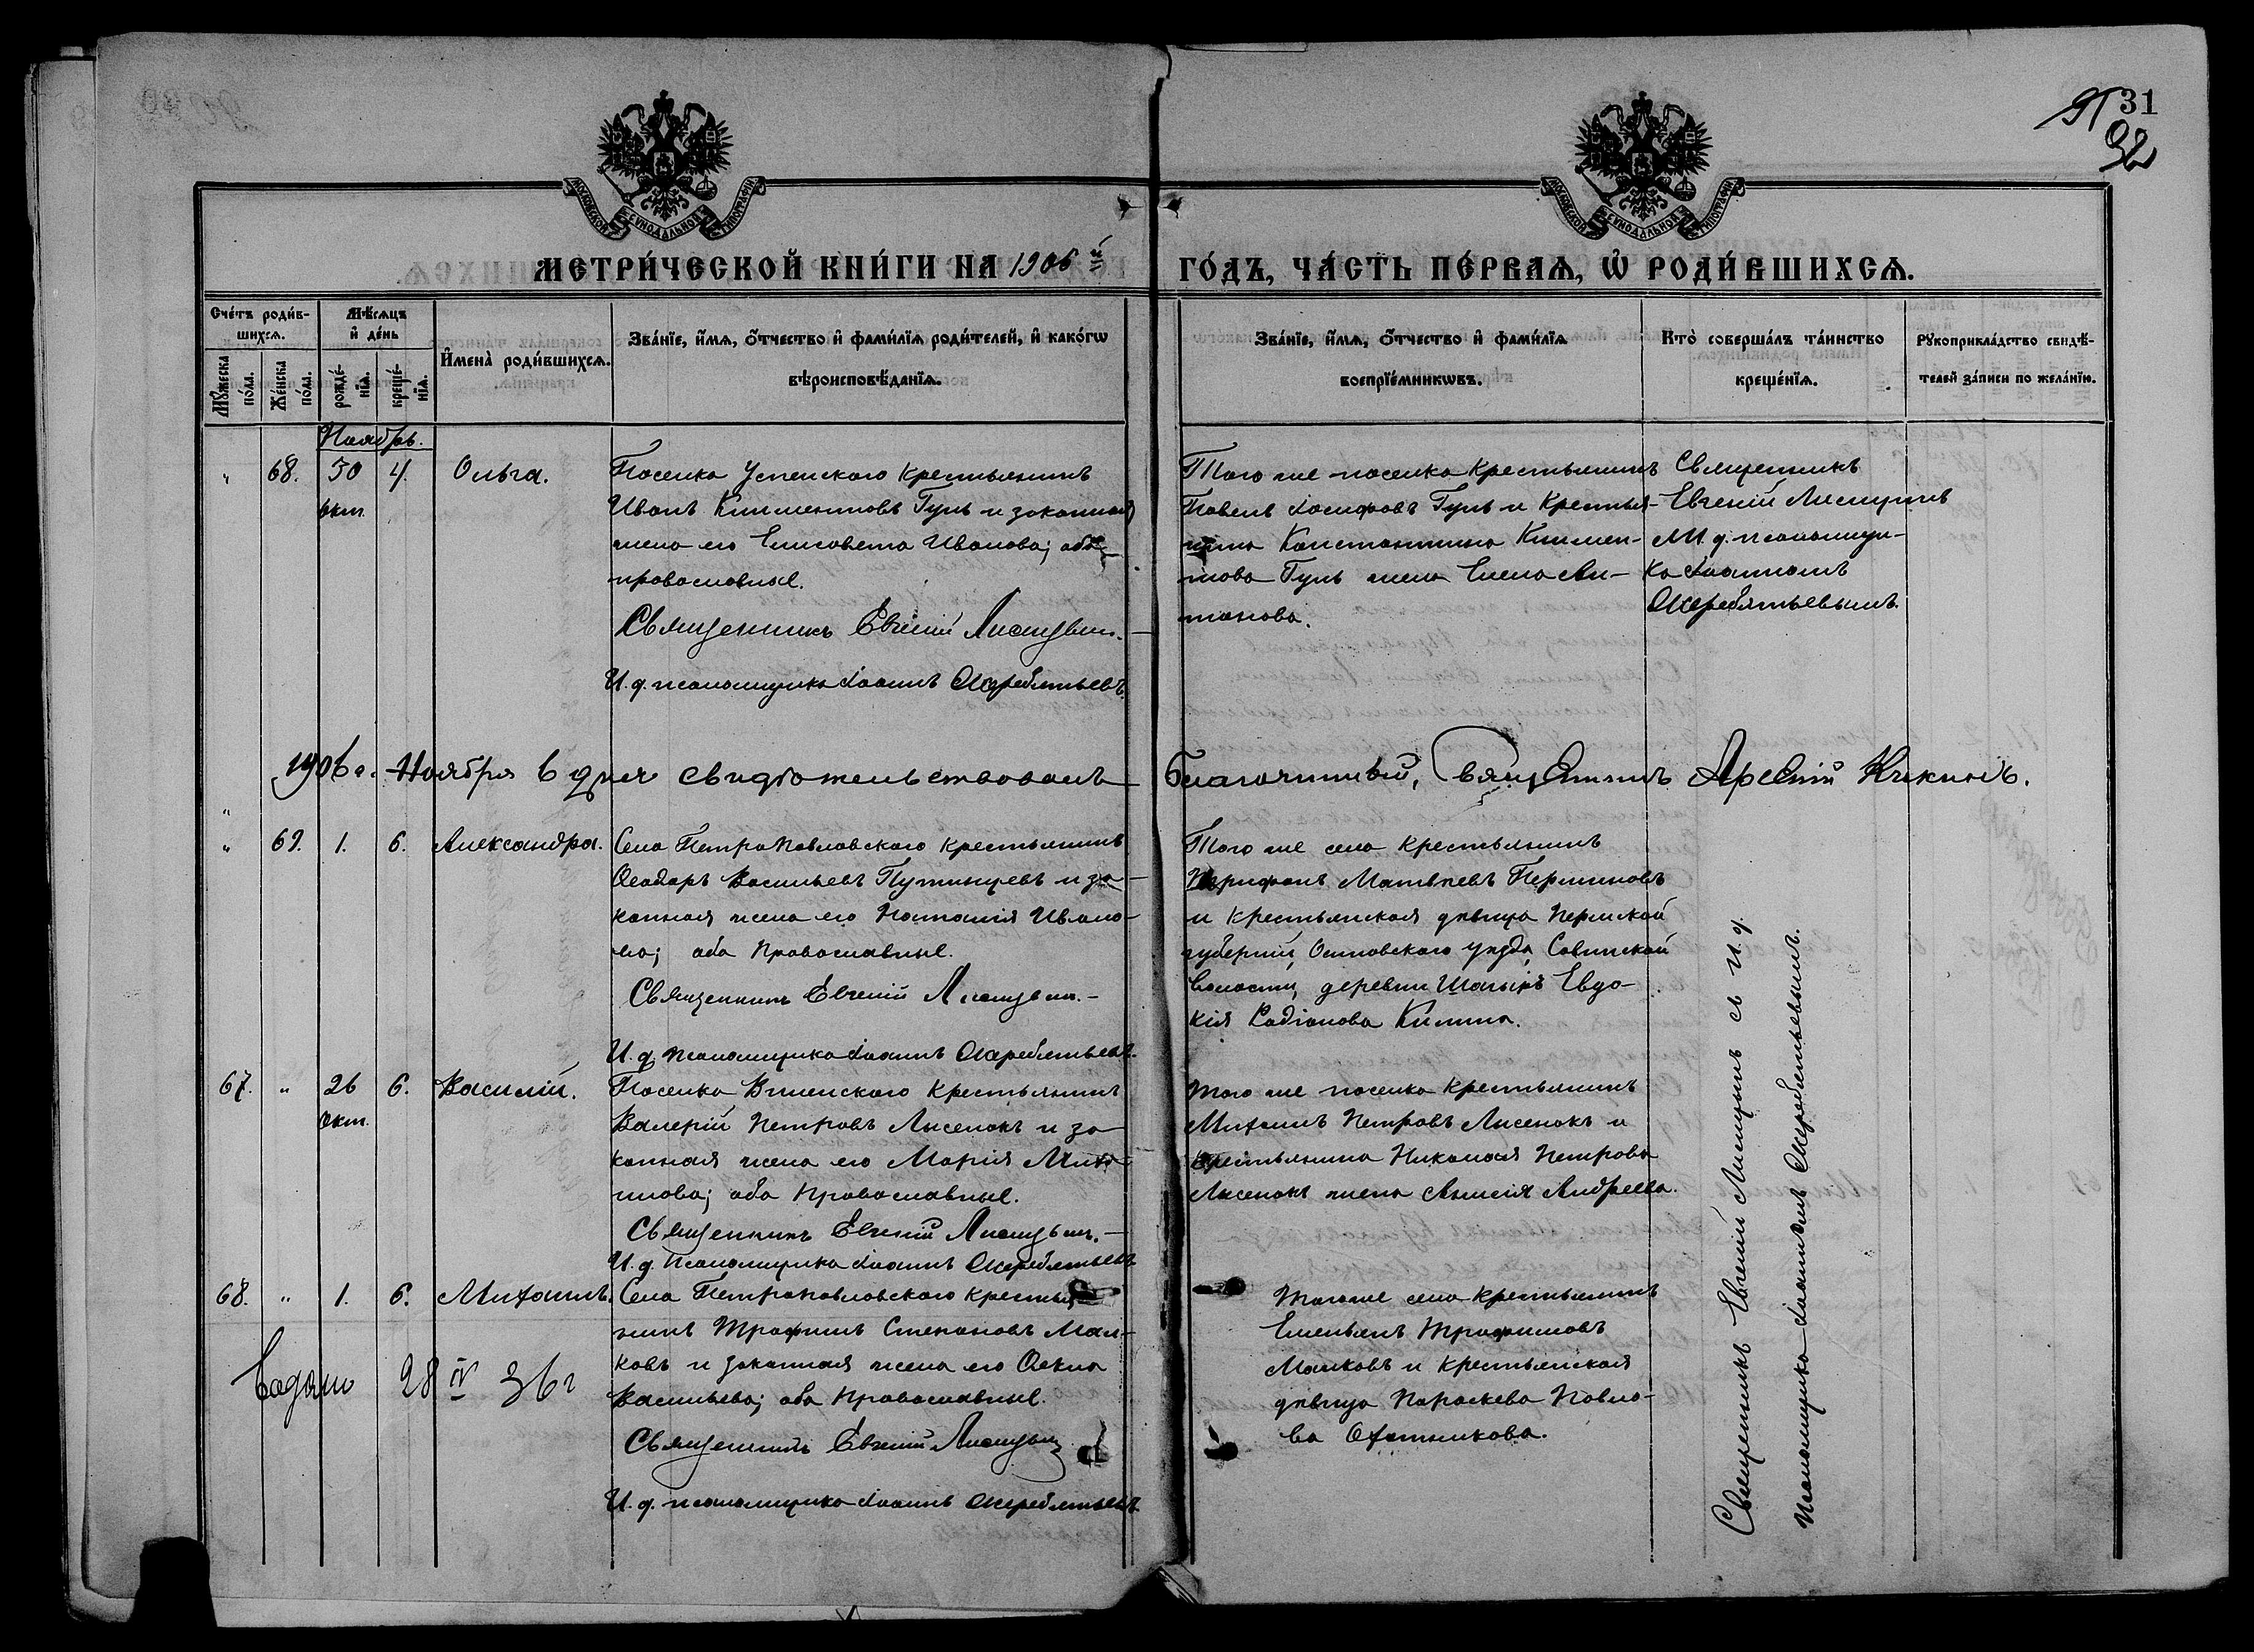 31
92
МОСКОВСКОЙ СѴНОДАЛЬНОЙ ТИПОГРАФІИ
МОСКОВСКОЙ СѴНОДАЛЬНОЙ ТИПОГРАФІИ
МЕТРИ́ЧЕСКОЙ КНИ́ГИ НА 1906 й
ГО́ДЪ, ЧА́СТЬ ПЕ́РВАѦ, Ѡ҆ РОДИ́ВШИХСѦ.
Сче́тъ роди́в-
шихсѧ.
Мꙋ́жеска по́ла.
Же́нска по́ла.
Мѣ́сѧцъ
и҆ де́нь
рожде́-нїѧ.
креще́-нїѧ.
И҆мена̀ роди́вшихсѧ.
Зва́нїе, и҆́мѧ, ѻ҆́тчество и҆ фами́лїѧ роди́телей, и҆ како́гѡ
вѣроисповѣ́данїѧ.
Зва́нїе, и҆́мѧ, ѻ҆́тчество и҆ фами́лїѧ
воспрїе́мникѡвъ.
Кто̀ соверша́лъ та́инство
креще́нїѧ.
Рꙋкоприкла́дство свидѣ́-
телей за́писи по жела́нїю.
Ноябрь.
" 68. 30 4. Ольга.
окт.
Поселка Успенского крестьянинъ
Иванъ Климентовъ Гуль и законная
жена его Елисавета Иванова; оба
православные.
Священникъ Евгеній Лисицынъ.
И. д. псаломщика Іоаннъ Жеребятьевъ.
Того же поселка крестьянинъ
Павелъ Іосифовъ Гуль и крестья-
нина Константина Климен-
това Гуль жена Елена Ан-
тонова.
Священникъ
Евгеній Лисицынъ
и. д. псаломщи-
ка Іоанномъ
Жеребятьевымъ.
1906 г. Ноября 6 дня свидѣтельствовалъ Благочинный, Священникъ Арсеній Кикинъ.
"
" 69. 1. 6. Александра.
Села Петропавловского крестьянинъ
Ѳеодоръ Васильевъ Путинцевъ и за-
конная жена его Наталія Ивано-
ва; оба православные.
Священникъ Евгеній Лисицынъ.
И. д. псаломщика Іоаннъ Жеребятьевъ.
Того же села крестьянинъ
Трифонъ Матвѣевъ Перминовъ
и крестьянская дѣвица Пермской
губерніи, Осинского уѣзда, Савинской
волости, деревни Евдо-
кія Родіонова Килина.
67. " 26 6. Василій.
окт.
Поселка Виленского крестьянинъ
Валерій Петровъ Лысенокъ и за-
конная жена его Марія
оба православные.
Священникъ Евгеній Лисицынъ.
И. д. псаломщика Іоаннъ Жеребятьевъ
Того же поселка крестьянинъ
Михаилъ Петровъ Лысенокъ и
крестьянина Николая Петрова
Лысенокъ жена Андреева.
68. " 1. 6. Михаилъ.
Села Петропавловского крестья-
нинъ Трофимъ Степановъ Мал-
ковъ и законная жена его Ѳекла
Васильева; оба православные.
Священникъ Евгеній Лисицынъ
И. д. псаломщика Іоаннъ Жеребятьевъ.
Того же села крестьянинъ
Емельянъ Трофимовъ
Малковъ и крестьянская
дѣвица Параскева Павло-
ва Охотникова.
28 IV 36 г
Священникъ Евгеній Лисицынъ съ и. д.
псаломщика Іоанномъ Жеребятьевымъ.